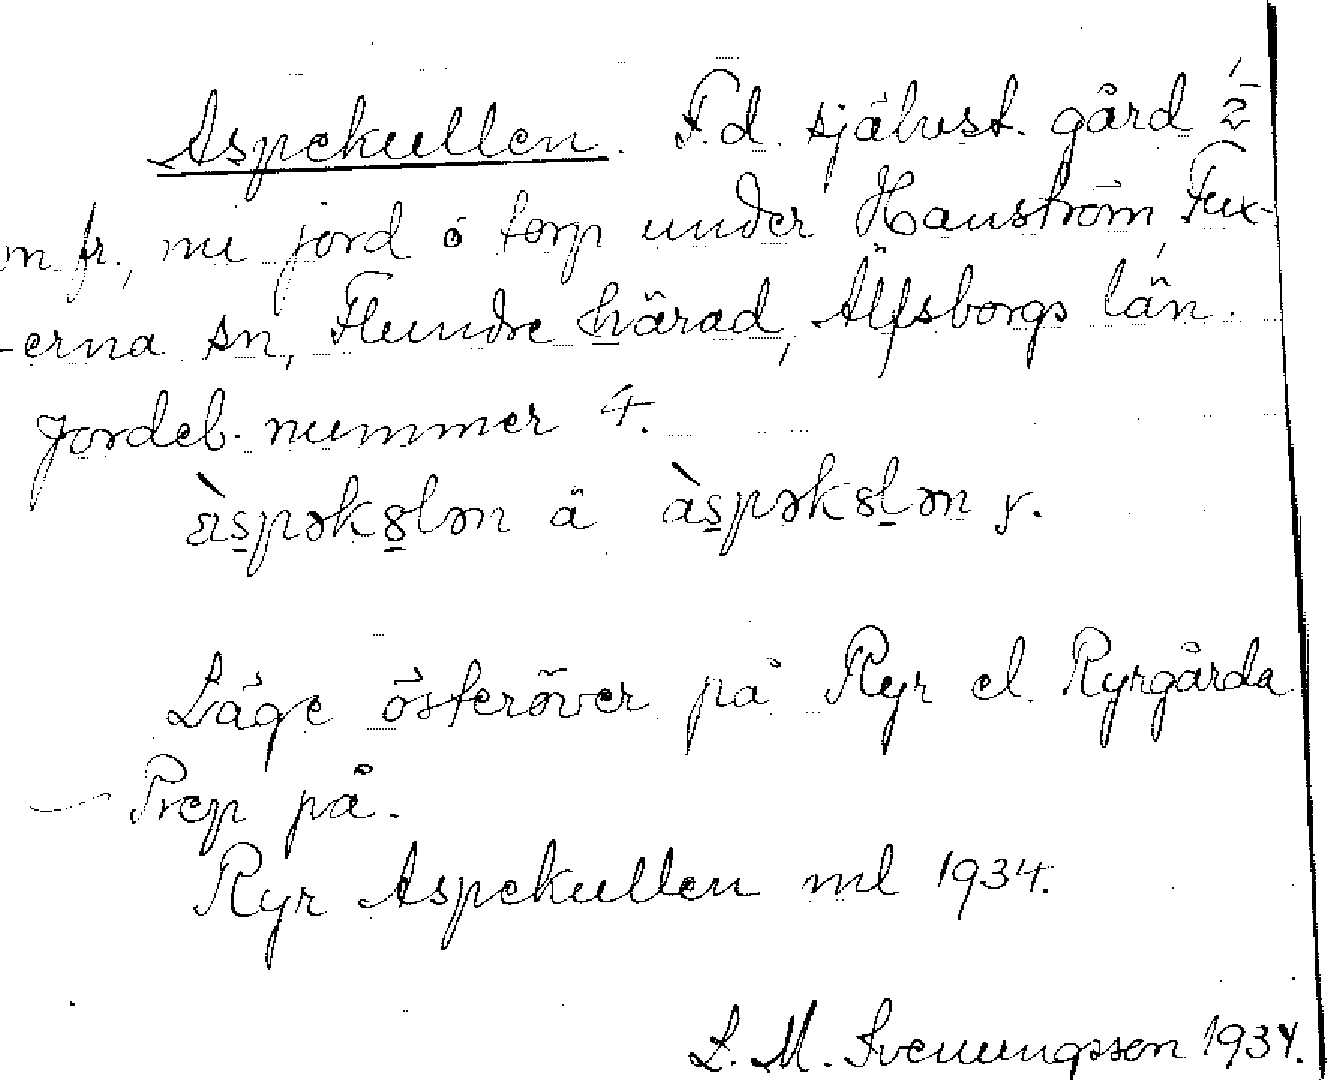 Aspekullen. F.d. självst. gård 1/2
m fr., nu jord ó torp under Hanström, Fux-
-erna sn, Flundre härad, Älfsborgs län.
Jordeb. nummer 4.
àspəkȣlən ä àspəkȣlən y.
Läge österöver på Ryr el. Ryrgårda
– Prep på.
Ryr Aspekullen ml 1934.
L. M. Svenungsson 1934.